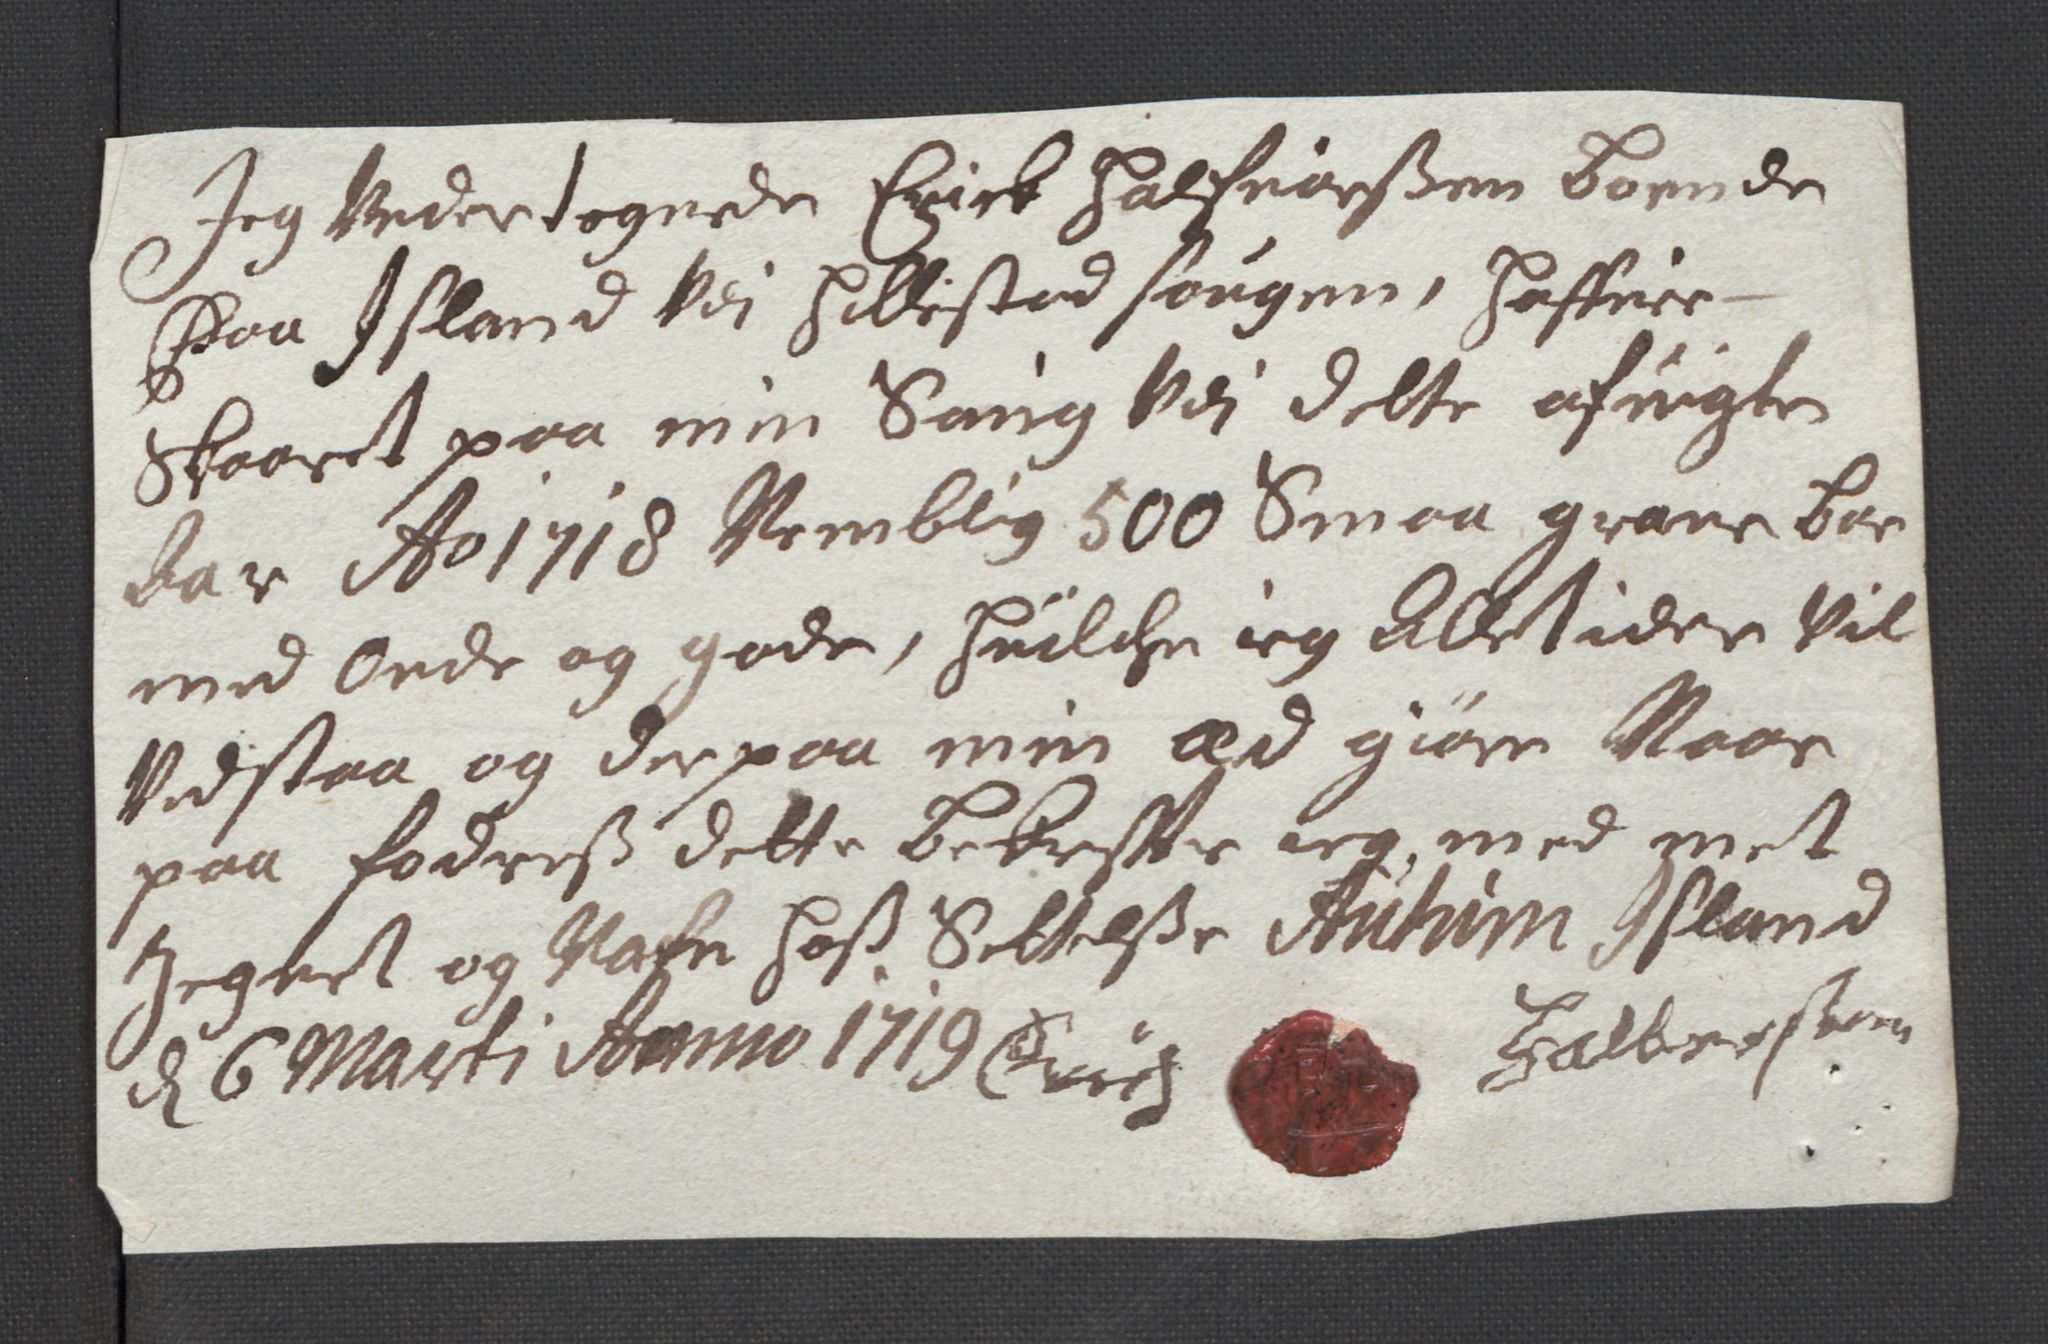 Jeg Vndertegnede Erick Halfuorßen boende
Paa Island Vdi Hillestad sougen, Haffuer
Skaaret paa min Saug Vdi dette afuigte
Aar Ao 1718 Nemblig 500 Smaa grane bor
med Onde og gode, Huilche ieg Alletider Vil
Vedstaa og derpaa min Æd giøre Naar
paa fodreß dette bekrefter ieg med mit
Zegnet og Nafn hoß Settelße Actum Island
d 6 Marti Anno 1719 Erich Halvorsen